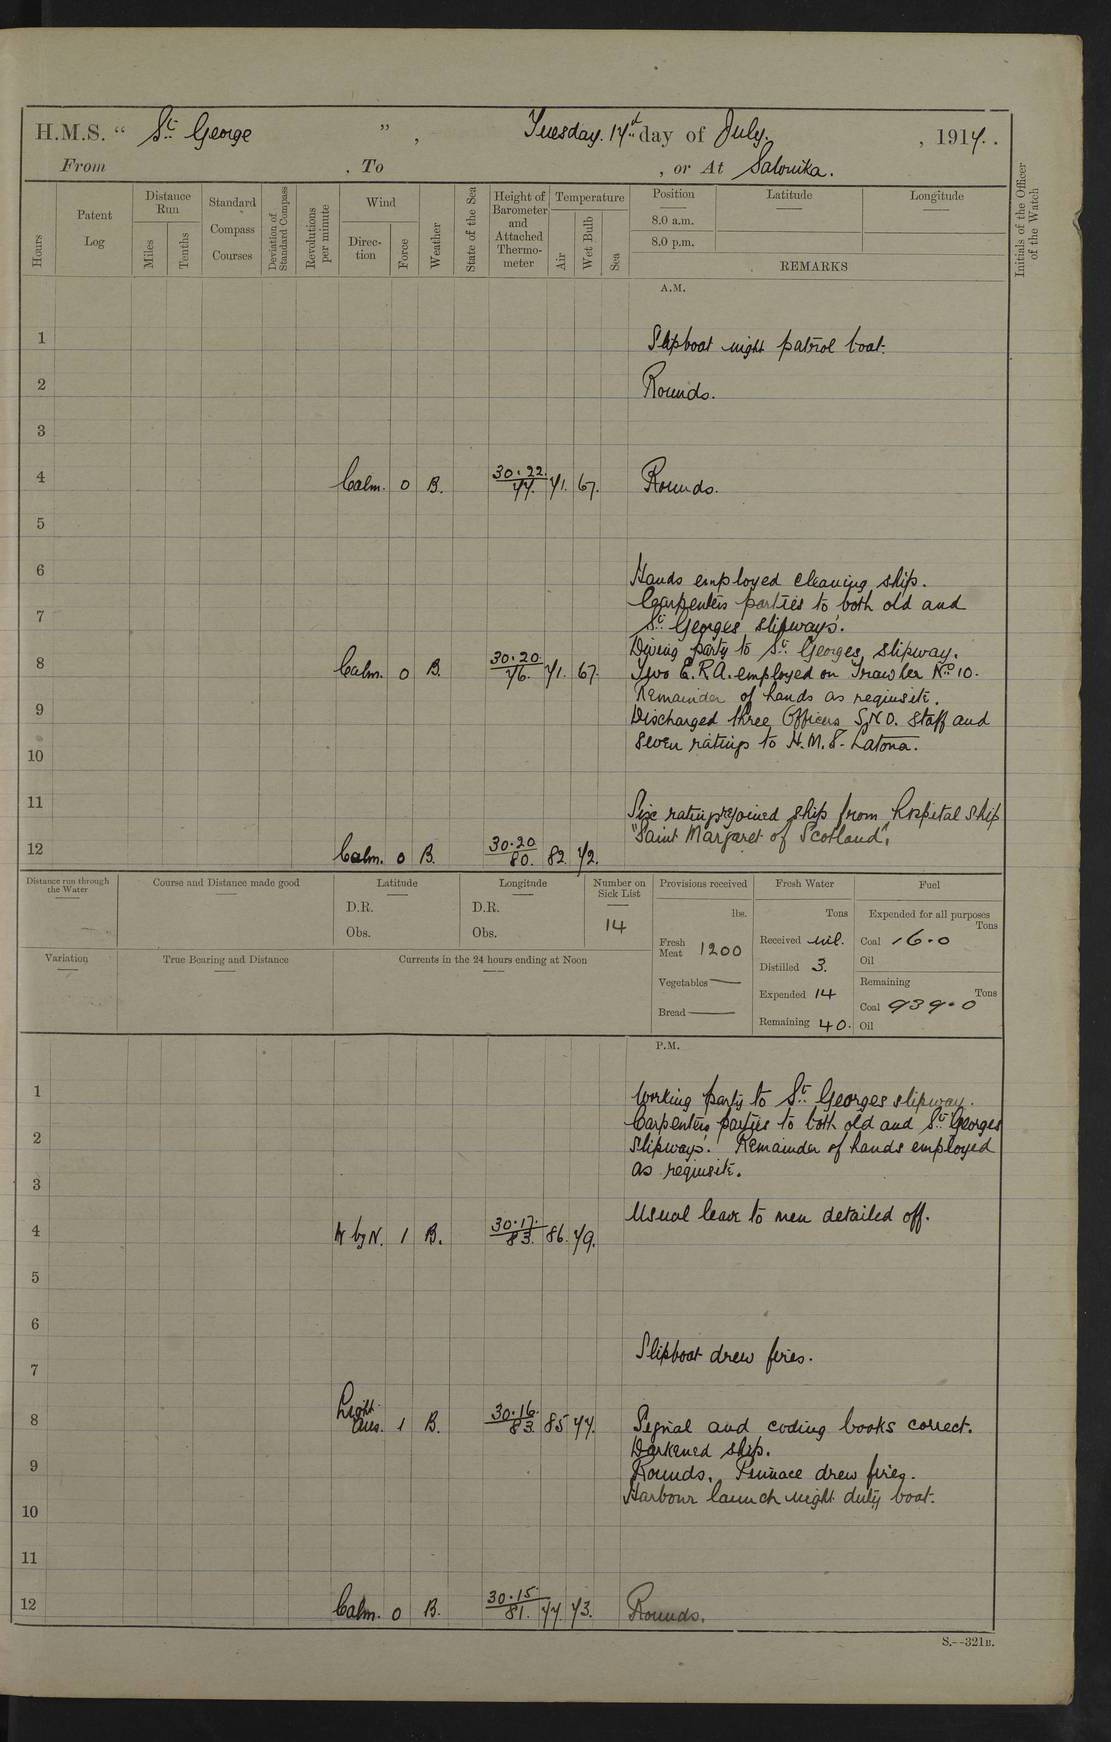 H.M.S. “ St. George ” , Tuesday. 17th day of July. , 1917. .
From , To , or At Salonika.
Hours
Patent Log
Distance Run
Miles
Tenths
Standard Compass Courses
Deviation of Standard Compass
Revolutions per minute
Wind
Direction
Force
Weather
State of the Sea
Height of Barometer and Attached Thermometer
Temperature
Air
Wet Bulb
Sea
Position
8.0 a.m.
8.0 p.m.
Latitude
Longitude
REMARKS
Initials of the Officer of the Watch
A.M.
1 Slipboat night patrol boat.
2 Rounds.
3
4 Calm. 0 B. 30.22. 77. 71. 67. Rounds.
5
6 Hands employed cleaning ship.
Carpenters parties to both old and
7 St. Georges slipways.
Diving party to St. Georges, slipway.
8 Calm. 0 B. 30.20. 76. 71. 67. Two E.R.A. employed on Trawler No. 10.
Remainder of hands as requisite.
9 Discharged three Officers S.N.O. Staff and
seven ratings to H.M.S. Latona.
10
11 Six ratings rejoined ship from hospital ship
"Saint Margaret of Scotland".
12 Calm. 0 B. 30.20 80. 82. 72.
Distance run through the Water
Course and Distance made good
Latitude
D.R.
Obs.
Longitude
D.R.
Obs.
Number on Sick List
14
Provisions received
lbs.
Fresh Meat 1200
Vegetables —
Bread —
Fresh Water
Tons
Received nil.
Distilled 3.
Expended 14
Remaining 40.
Fuel
Expended for all purposes
Tons
Coal 16.0
Oil
Remaining
Tons
Coal 939.0
Oil
Variation
True Bearing and Distance
Currents in the 24 hours ending at Noon
P.M.
1 Working party to St. Georges slipway.
Carpenters parties to both old and St. Georges
2 slipways. Remainder of hands employed
as requisite.
3
Usual leave to men detailed off.
4 N by W. 1 B. 30.17. 83. 86. 79.
5
6
Slipboat drew fires.
7
8 Light airs. 1 B. 30.16. 83. 85 77. Signal and coding books correct.
Darkened ship.
9 Rounds. Pinnace drew fires.
Harbour launch night duty boat.
10
11
12 Calm. 0 B. 30.15. 81. 77. 73. Rounds.
S.--321B.